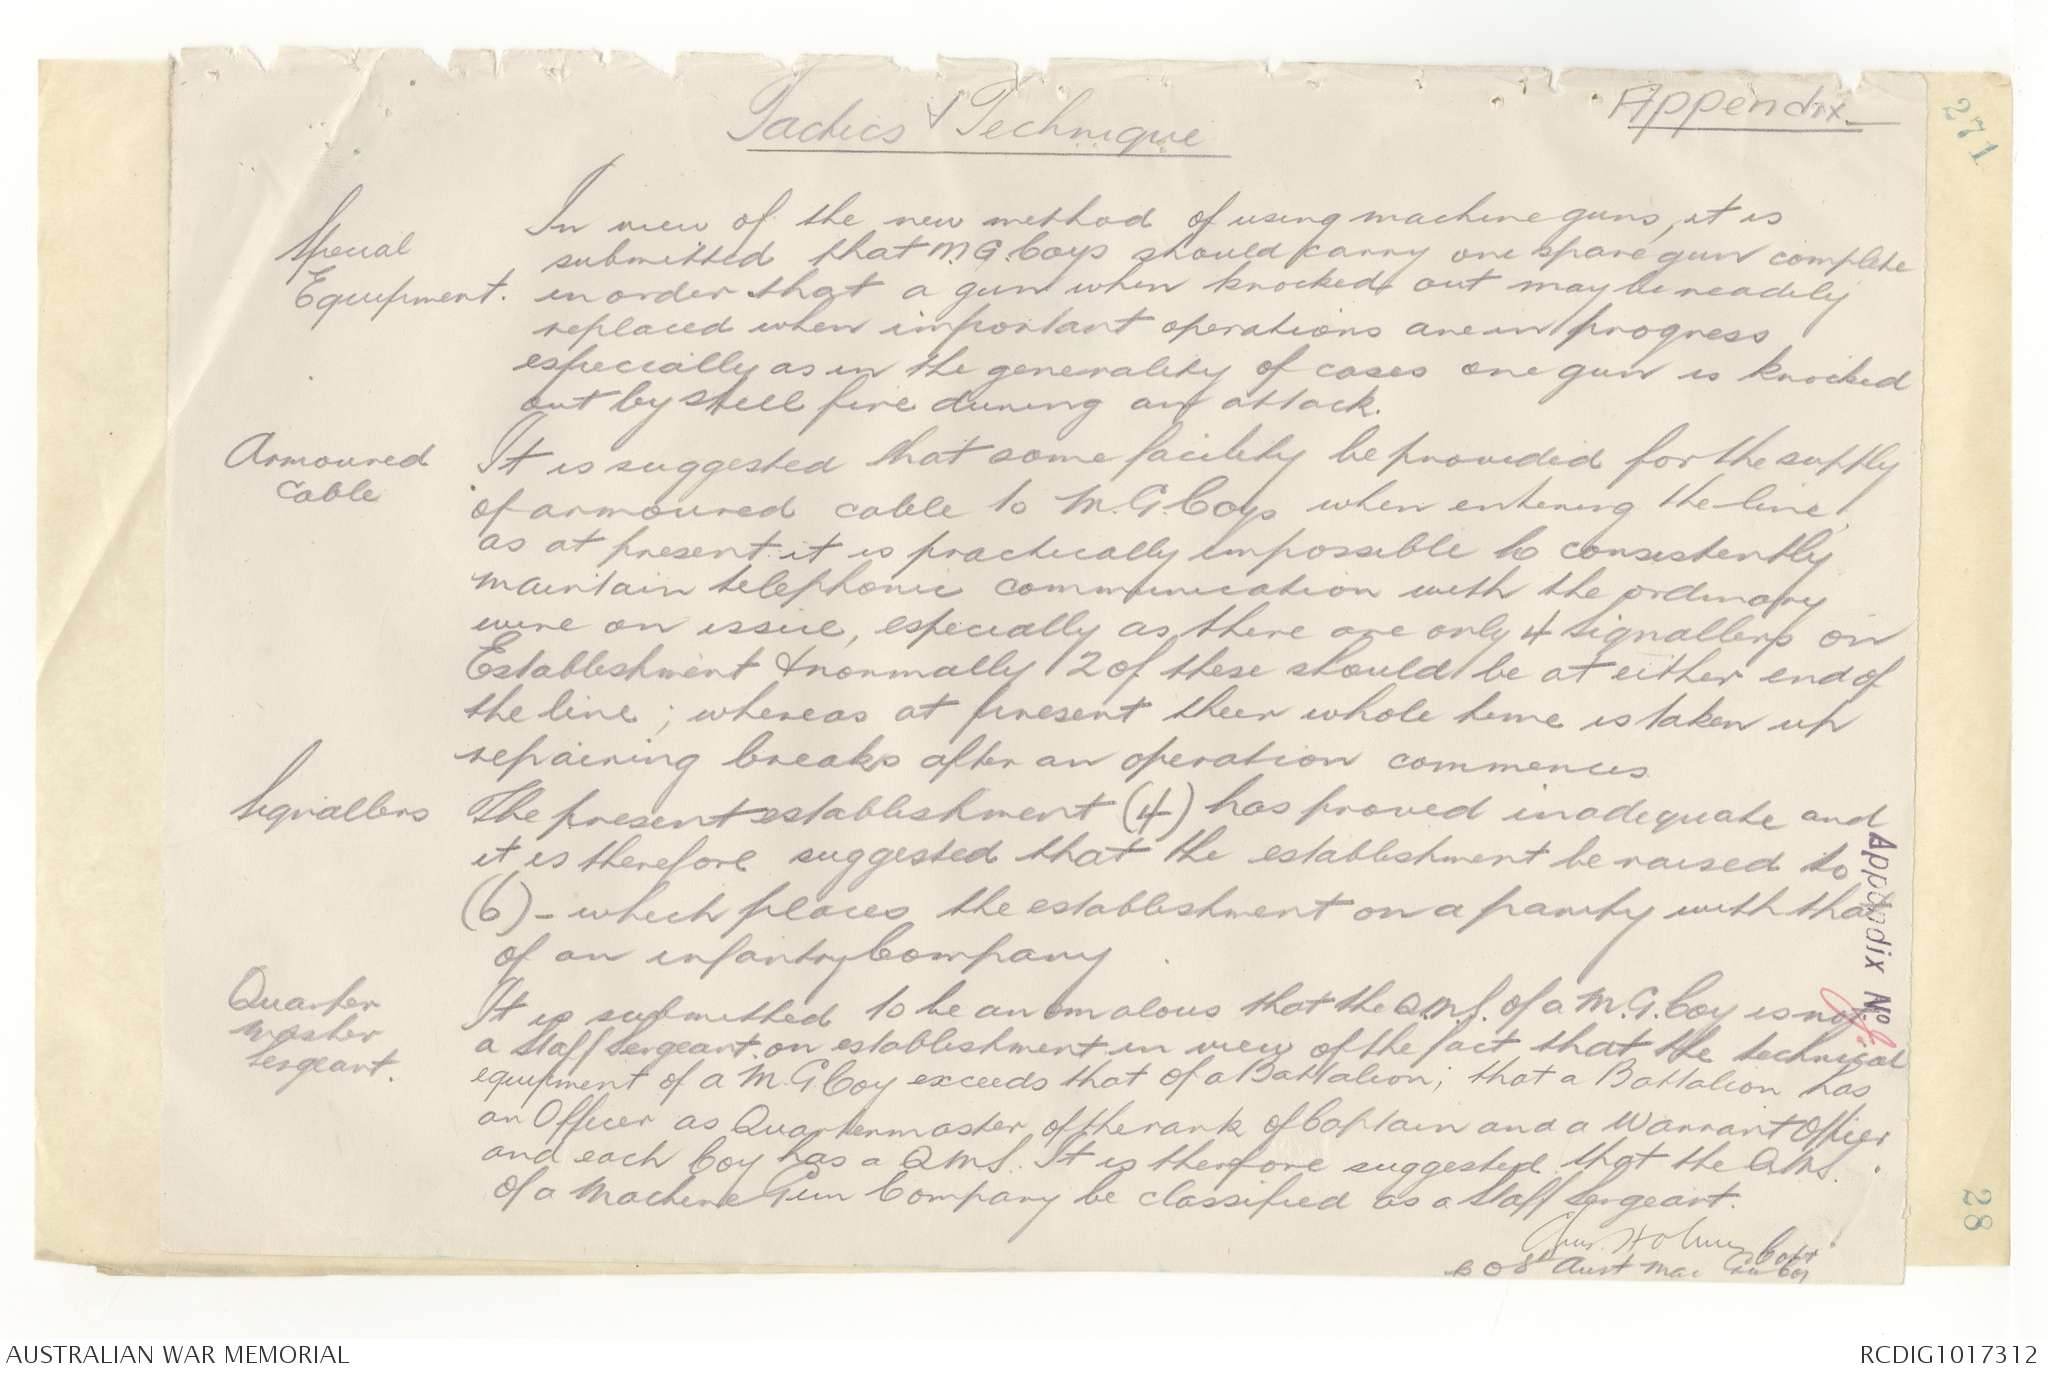 Tactics & Technique
Appendix
271
Special
Equipment.
In view of the new method of using machine guns, it is
submitted that M.G. Coys should carry one spare gun complete
in order that a gun when knocked out may be readily
replaced when important operations are in progress
especially as in the generality of cases one gun is knocked
out by shell fire during an attack.
Armoured
Cable
It is suggested that some facility be provided for the supply
of armoured cable to M.G. Coys when entering the line,
as at present it is practically impossible to consistently
maintain telephonic communication with the ordinary
wire on issue, especially as there are only 4 signallers on
Establishment & normally 2 of these should be at either end of
the line; whereas at present their whole time is taken up
repairing breaks after an operation commences
Signallers
The present establishment (4) has proved inadequate and
it is therefore suggested that the establishment be raised to
(6) - which places the establishment on a parity with that
of an infantry Company.
Appendix No
Quarter
Master
Sergeant.
It is submitted to be anomalous that the QMS. of a M.G. Coy is not
a Staff Sergeant on establishment in view of the fact that the technical
equipment of a M.G Coy exceeds that of a Battalion; that a Battalion has
an Officer as Quartermaster of the rank of Captain and a Warrant Officer
and each Coy has a QMS. It is therefore suggested that the QMS.
of a Machine Gun Company be classified as a Staff Sergeant.
Capt
Aust Mac Gun Coy
28
AUSTRALIAN WAR MEMORIAL
RCDIG1017312